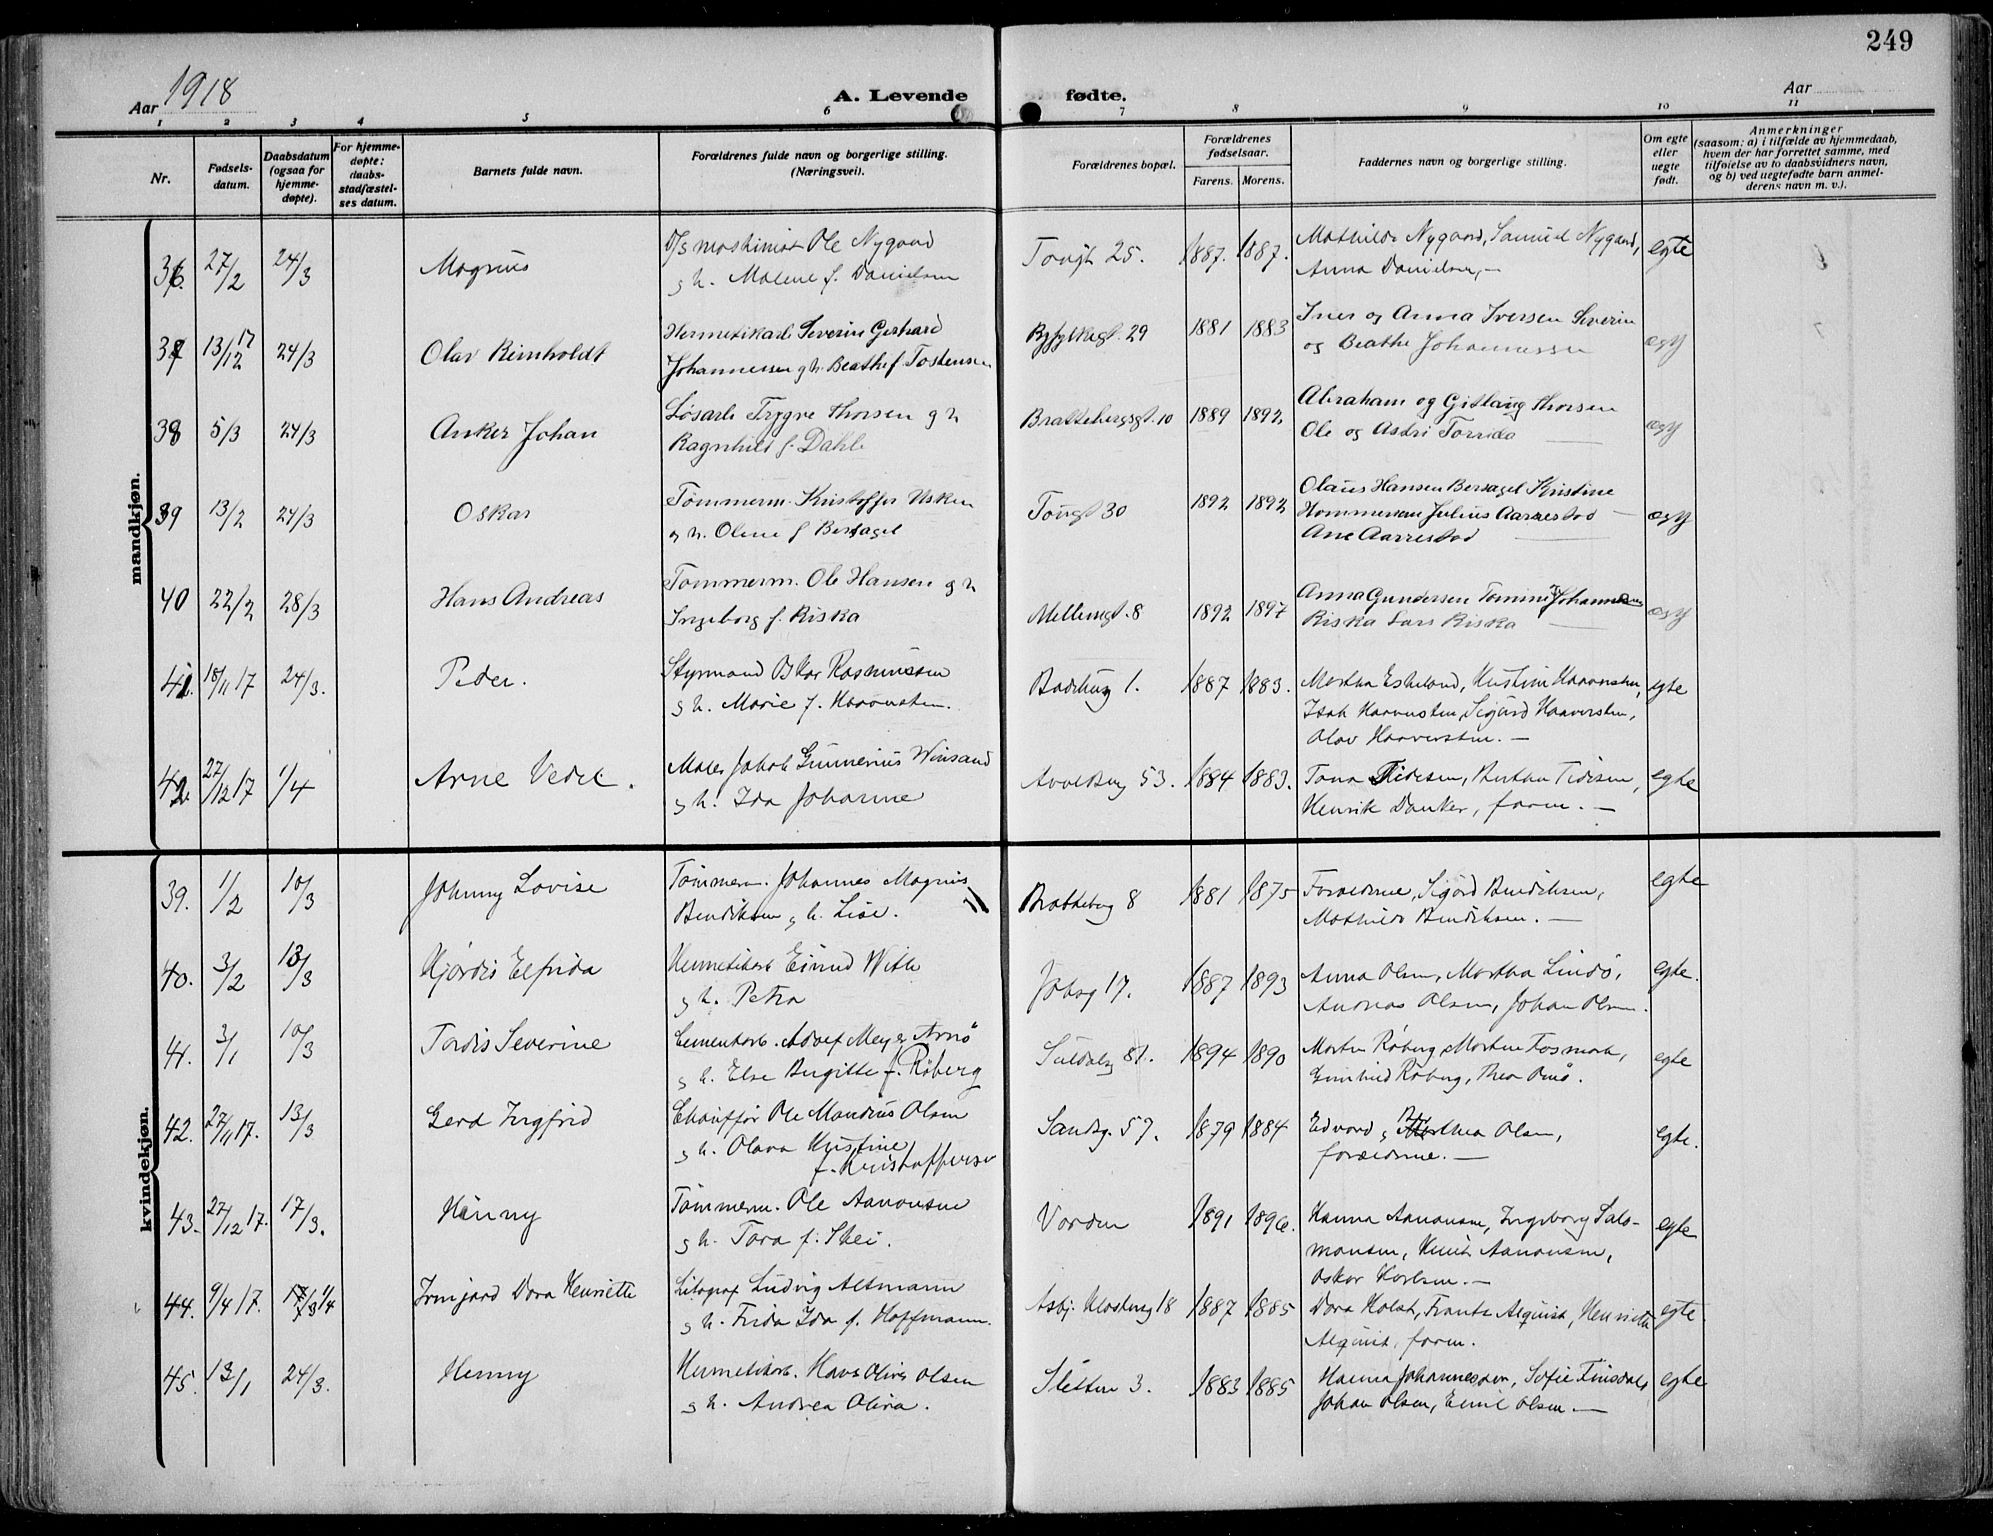 249
Aar 1918
A. Levende fødte.
Aar
1 2 3 4 5 6 7 8 9 10 11
Nr.
Fødsels-
datum.
Daabsdatum
(ogsaa for
hjemme-
døpte).
For hjemme-
døpte:
daabs-
stadfæstel-
ses datum.
Barnets fulde navn.
Forældrenes fulde navn og borgerlige stilling.
(Næringsvei).
Forældrenes bopæl.
Forældrenes
fødselsaar.
Farens. Morens.
Faddernes navn og borgerlige stilling.
Om egte
eller
uegte
født.
Anmerkninger
(saasom: a) i tilfælde av hjemmedaab,
hvem der har forrettet samme, med
tilføielse av to daabsvidners navn,
og b) ved uegtefødte barn anmel-
derens navn m. v.).
mandkjøn.
36. 27/2 24/3 Magnus
D/s maskinist Ole Nygaard
g h. Malene f. Danielsen
25. 1887. 1887.
Mathilde Nygaard, Samuel Nygaard,
Anna Danielsen, —
egte
37 13/12 17 24/3 Olav Reinholdt
Hermetikarb Severin Gerhard
Johannessen g h. Beathe f. Tostensen
Ryfylkegt. 29 1881 1883
Iver og Anna Iversen Severin
og Beathe Johannessen
ægt
38 5/3 24/3 Anker Johan
Løsarb Trygve Thorsen g h
Ragnhild f. Dahle
Brattebergsgt. 10 1889 1892
Abraham og Gitlaug Thorsen
Ole og Astri
ægt
39 13/2 24/3 Oskar
Tømmerm. Kristoffer Usken
g h. Oline f Bersagel
30 1892 1892
Olaus Hansen Bersagel Kristine
Hommersan Julius Aarrestad
Ane Aarrestad
ægt
40 22/2 28/3 Hans Andreas
Tømmerm. Ole Hansen g h
Ingeborg f. Riska
Mellemgt. 8 1892 1897
Anna Gundersen Tomine Johannes
Riska Lars Riska
ægt
41. 18/11 17 24/3. Peder.
Styrmand Oskar Rasmussen
g h. Marie f. Haaversten.
1. 1887 1883.
Martha Eskeland, Kristine Haaversten,
Isak Haaversten, Sigurd Haaversten,
Olav Haaversten. —
egte
42. 27/12 17 1/4 Arne Vedel.
Maler Jakob Gunnerius Winsand
g h. Ida Johanne
53. 1884 1883.
Tona Tidesen, Bertha Tidesen,
Henrik Danker, farm. —
egte
kvindekjøn.
39. 1/2 10/3 Johnny Lovise
Tømmerm. Johannes Magnus
Bendiksen g h. Lise.
Bratteberg 8 1881 1875
Forældrene, Sigurd Bendiksen,
Mathilde Bendiksen. —
egte
40. 3/2 13/3 Hjørdis Elfrida
Hermetikarb Eivind With
g h. Petra
17. 1887 1893
Anna Olsen, Martha Lindø,
Andreas Olsen, Johan Olsen.
egte.
41. 3/1 10/3 Tordis Severine
Cementarb. Adolf Meyer Arnø
g h. Else Birgitte f. Røberg
Suldalsg 81. 1894 1890
Morten Røberg, Marthe Fosmark,
Gunhild Røberg, Thea
egte
42. 27/11 17. 13/3 Gerd Ingfrid
Chauffør Ole Mandius Olsen
g h. Olava Kristine
f. Kristoffersen
Sandsg. 57. 1879 1884
Edvard g Olsen,
forældrene. —
egte.
43. 27/12 17. 17/3. Henny
Tømmerm. Ole Aanonsen
g h. Tora f. Skei.
Varden 1891 1896.
Hanna Aanonsen, Ingeborg Salo-
monsen, Knut Aanonsen,
Oskar Karlsen. —
egte
44. 9/4 17. 1/4 Irmgard Dora Henriette
Litograf Ludvig Altmann
g h. Frida Ida f. Hoffmann.
Asbj. Klostersg 18 1887 1885
Dora Holst, Frants Alquist, Henriette
Alquist, farm.
egte.
45. 13/1 24/3. Henny
Hermetikarb. Hans Oliver Olsen
g h. Andrea Olina.
Sletten 3. 1883 1885
Hanna Johannessen, Sofie Finsdal,
Johan Olsen, Emil Olsen. —
egte